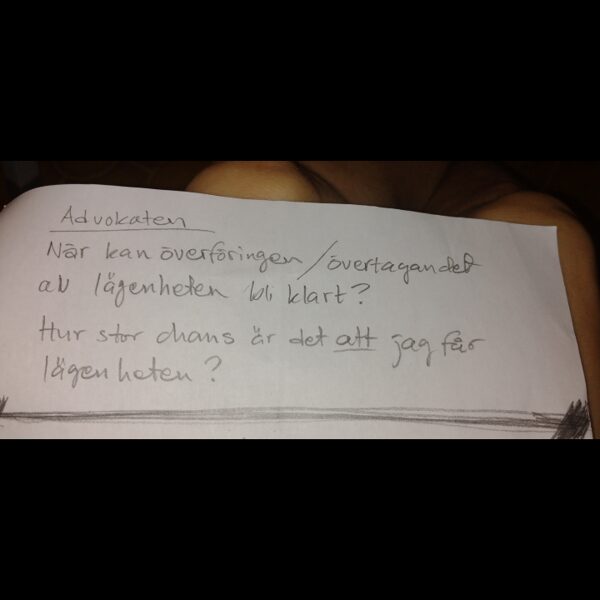 Advokaten
När kan överföringen / övertagandet
av lägenheten bli klart?
Hur stor chans är det att jag får
lägenheten?